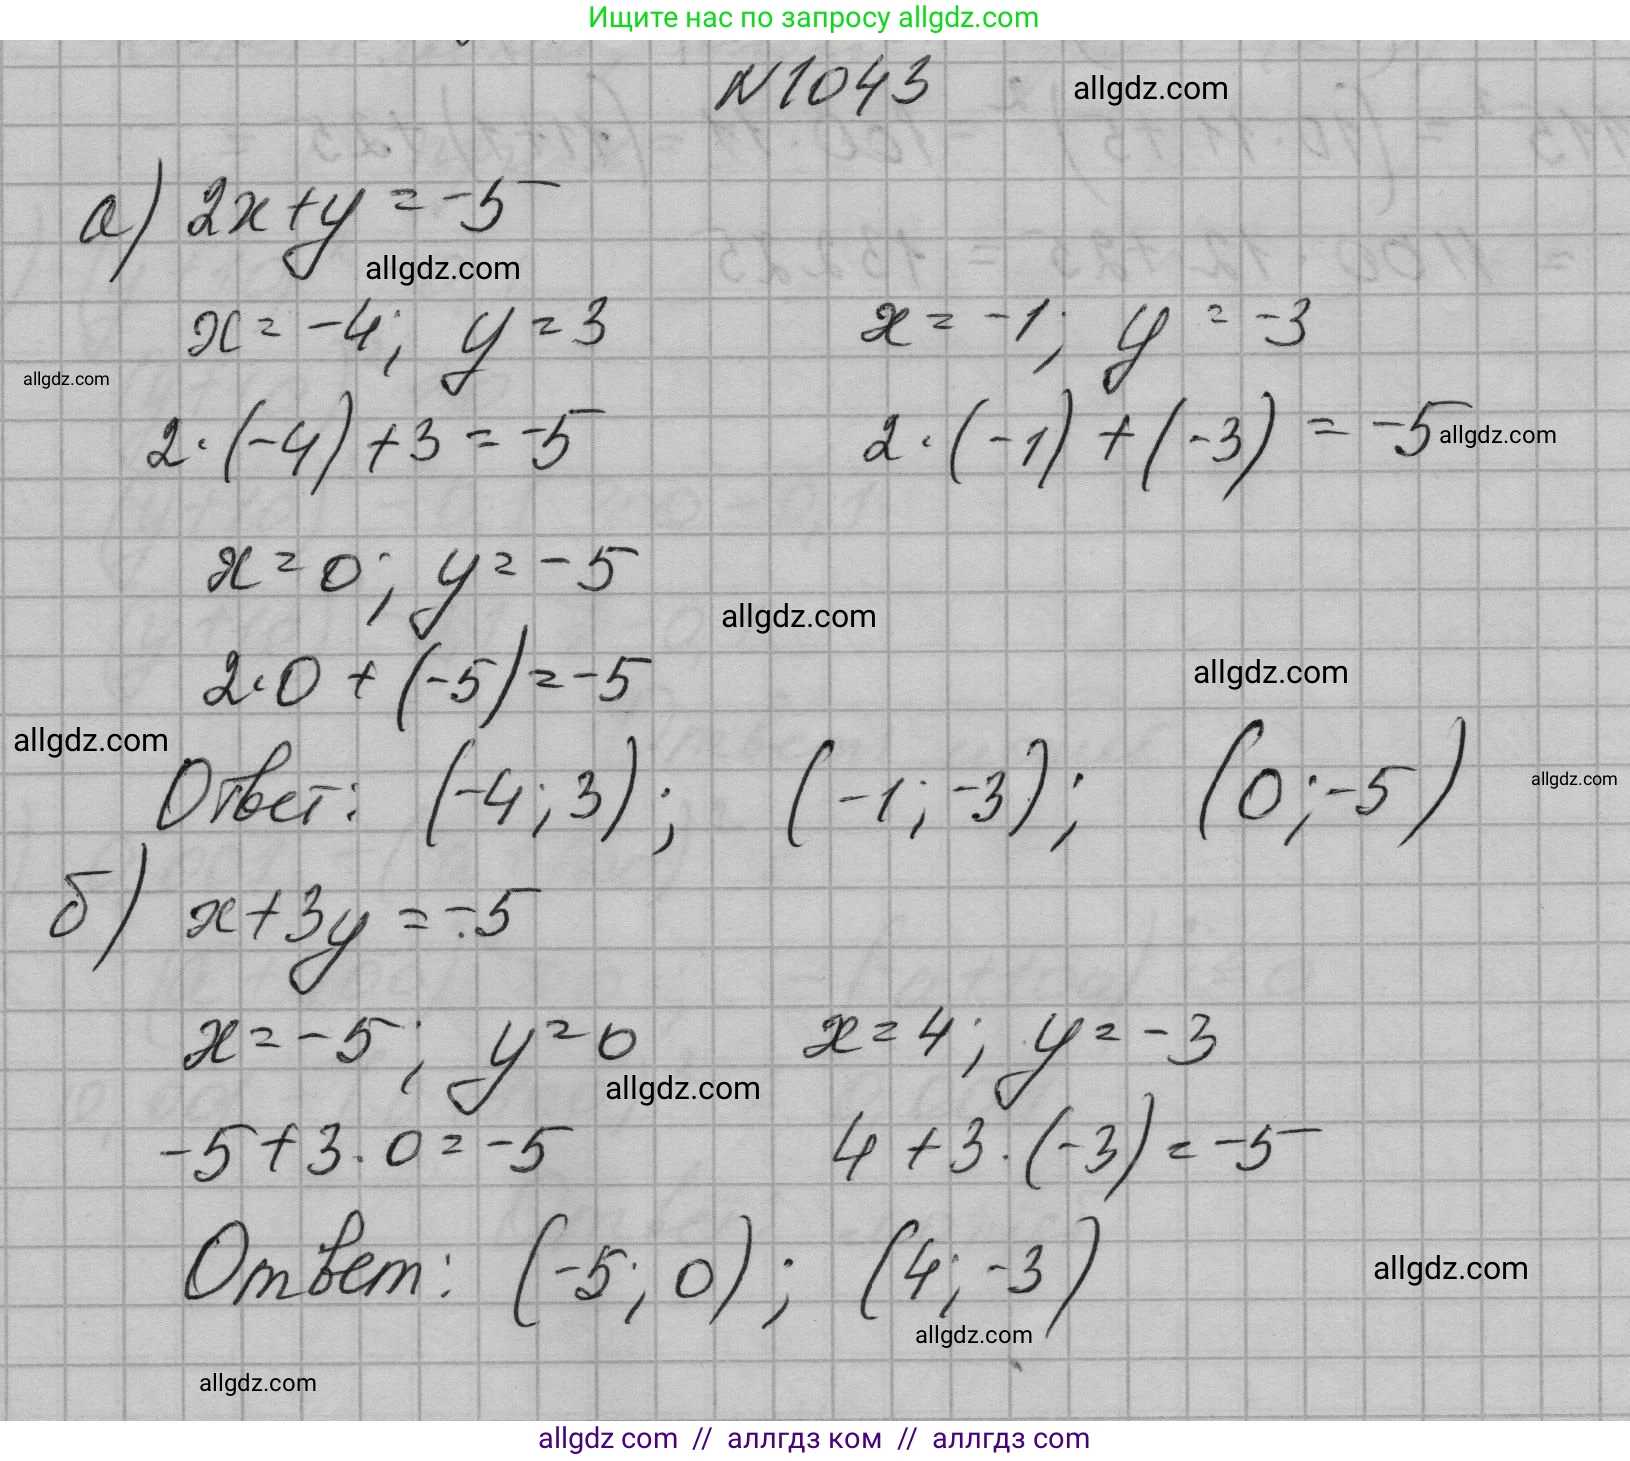 Ищите нас по запросу allgdz.com
N1043 allgdz.com
а) 2x+y = -5
allgdz.com
x = -4; y = 3 x = -1; y = -3
allgdz.com
2·(-4)+3 = -5 2·(-1)+(-3) = -5 allgdz.com
x = 0; y = -5
allgdz.com
2·0 + (-5) = -5 allgdz.com
allgdz.com
Ответ: (-4; 3); (-1; -3); (0; -5) allgdz.com
б) x+3y = -5
x = -5; y = 0 x = 4; y = -3
allgdz.com
-5+3·0 = -5 4+3·(-3) = -5
Ответ: (-5; 0); (4; -3) allgdz.com
allgdz.com
allgdz.com
allgdz com // аллгдз ком // аллгдз com